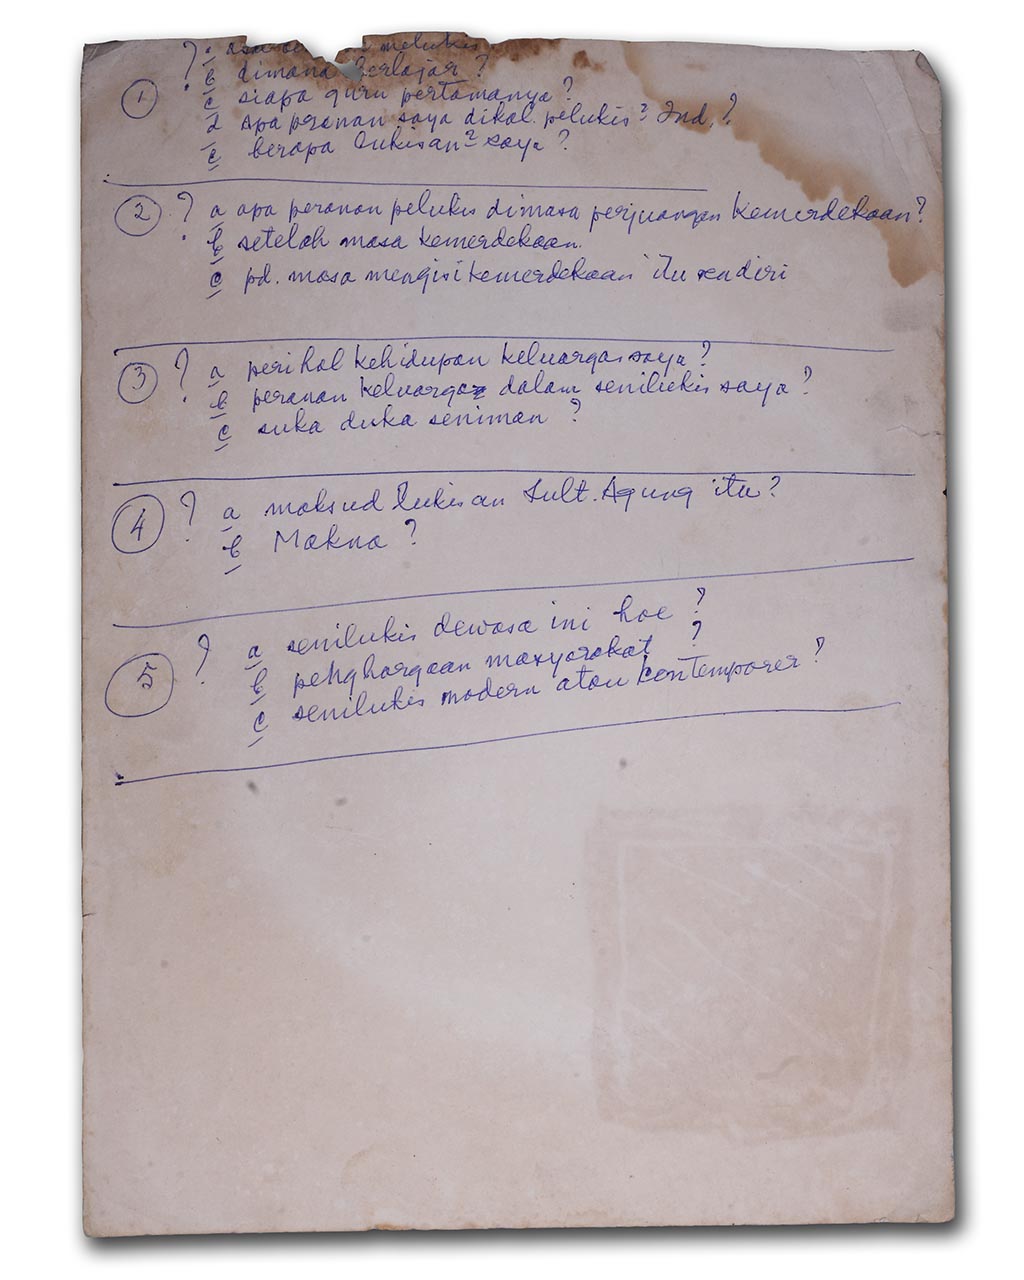 ? a melukis
b dimana berlajar ?
① c siapa guru pertamanya ?
d Apa peranan saya dikal. pelukis² Ind. ?
e berapa lukisan² saya ?
② ? a apa peranan pelukis dimasa perjuangan kemerdekaan ?
b setelah masa kemerdekaan.
c pd. masa mengisi kemerdekaan itu sendiri
③ ? a perihal kehidupan keluarga saya ?
b peranan keluarga dalam senilukis saya ?
c suka duka seniman ?
④ ? a maksud lukisan Sult. Agung itu ?
b Makna ?
⑤ ? a senilukis dewasa ini hoe ?
b penghargaan masyarakat ?
c senilukis modern atau kontemporer ?